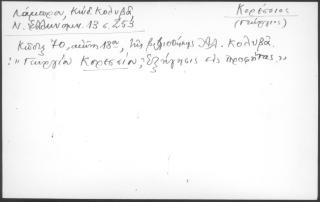 Λάμπρου, Κώδ. Κολυβᾶ
Ν. Ἑλληνομν. 13 σ. 253
Κορέσσιος
(Γεώργιος)
Κῶδ. 70, αἰῶν. 18ος, τῆς βιβλιοθήκης Ἀλ. Κολυβᾶ
: "Γεωργίου Κορεσσίου, Ἐξήγησις εἰς προφήτας"